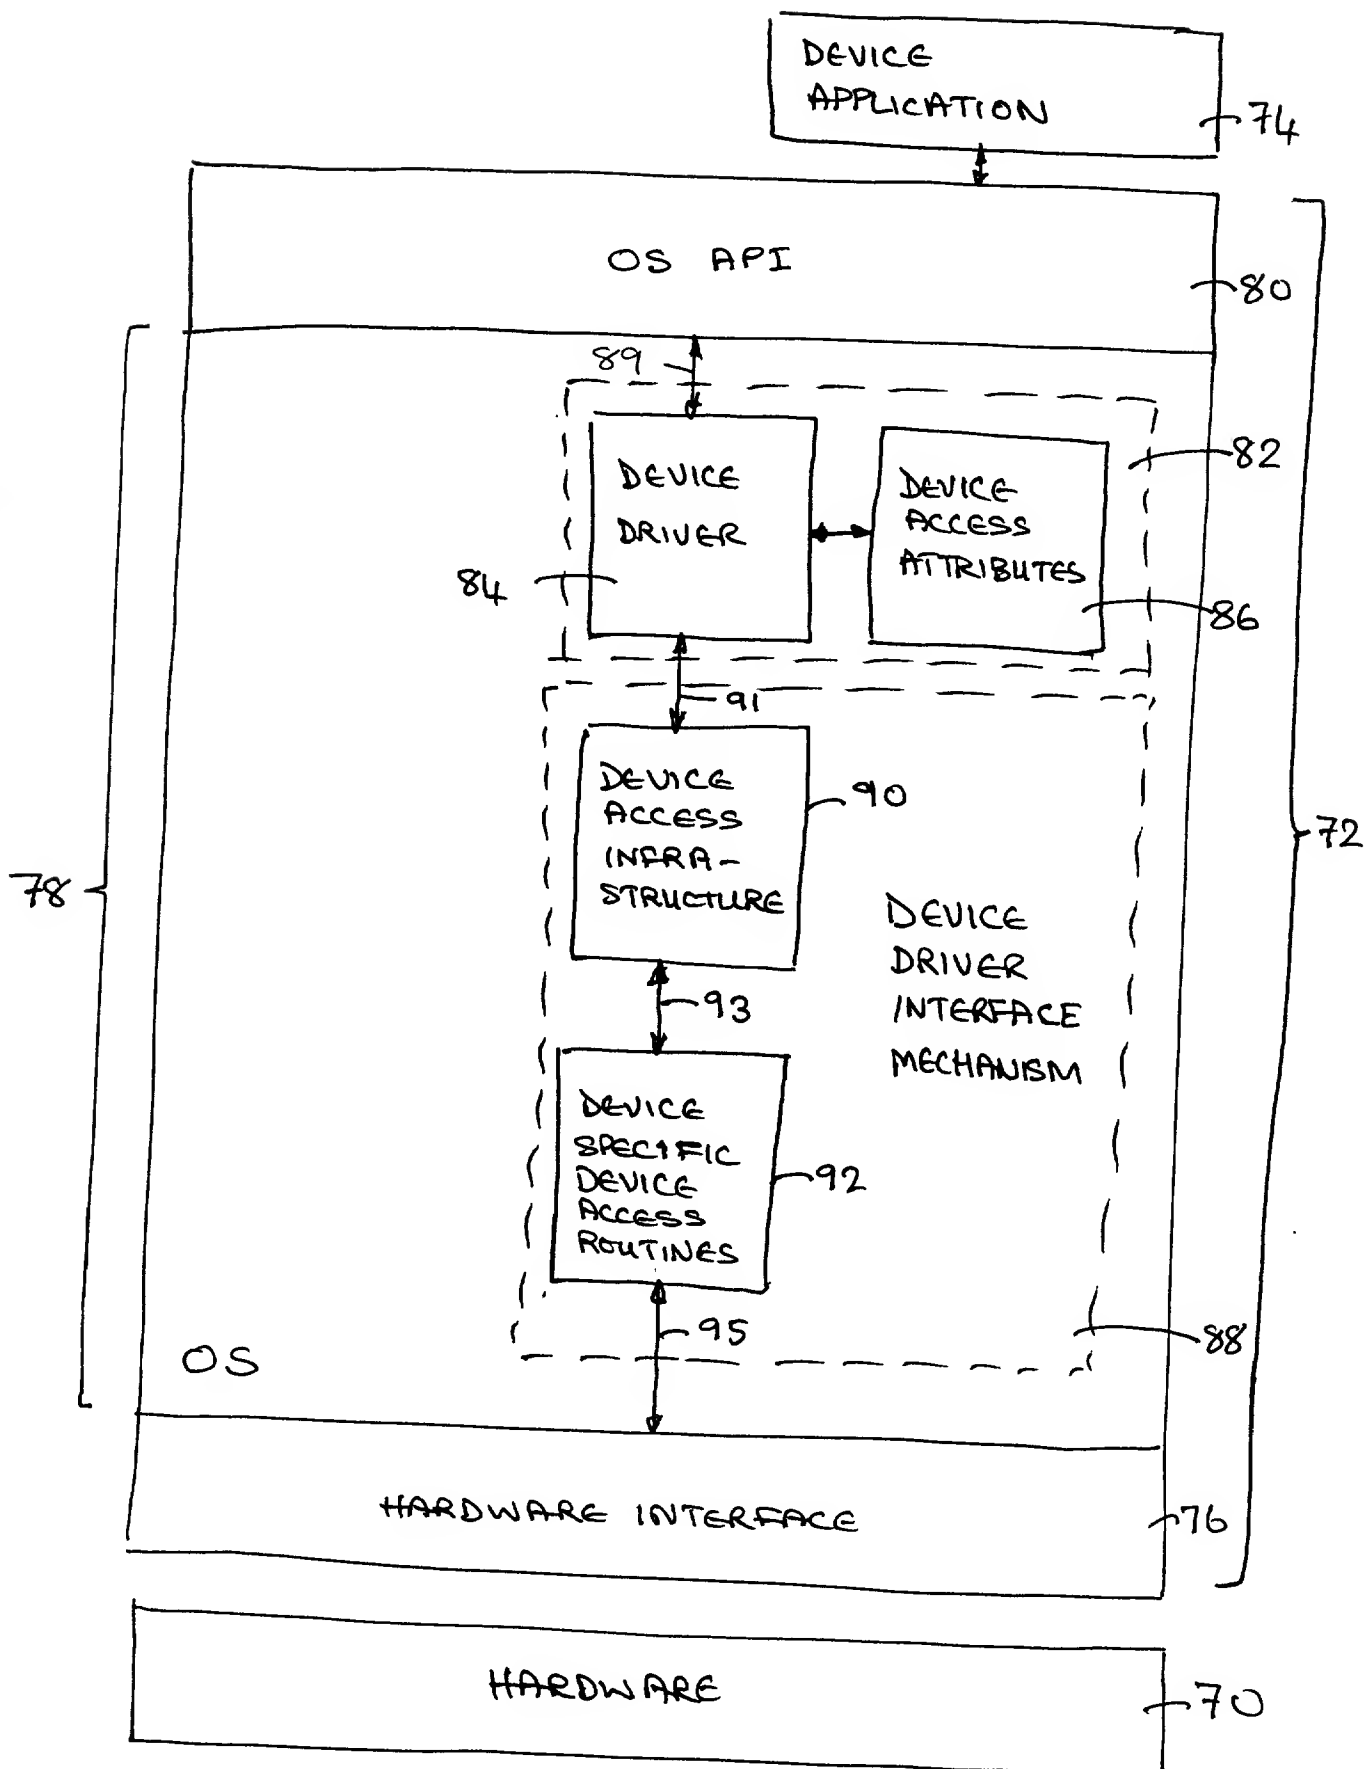 DEVICE
APPLICATION
74
OS API
80
89
82
DEVICE
DRIVER
DEVICE
ACCESS
ATTRIBUTES
84
86
91
DEVICE
ACCESS
INFRA-
STRUCTURE
90
72
78
DEVICE
DRIVER
INTERFACE
MECHANISM
93
DEVICE
SPECIFIC
DEVICE
ACCESS
ROUTINES
92
95
88
OS
HARDWARE INTERFACE
76
HARDWARE
70